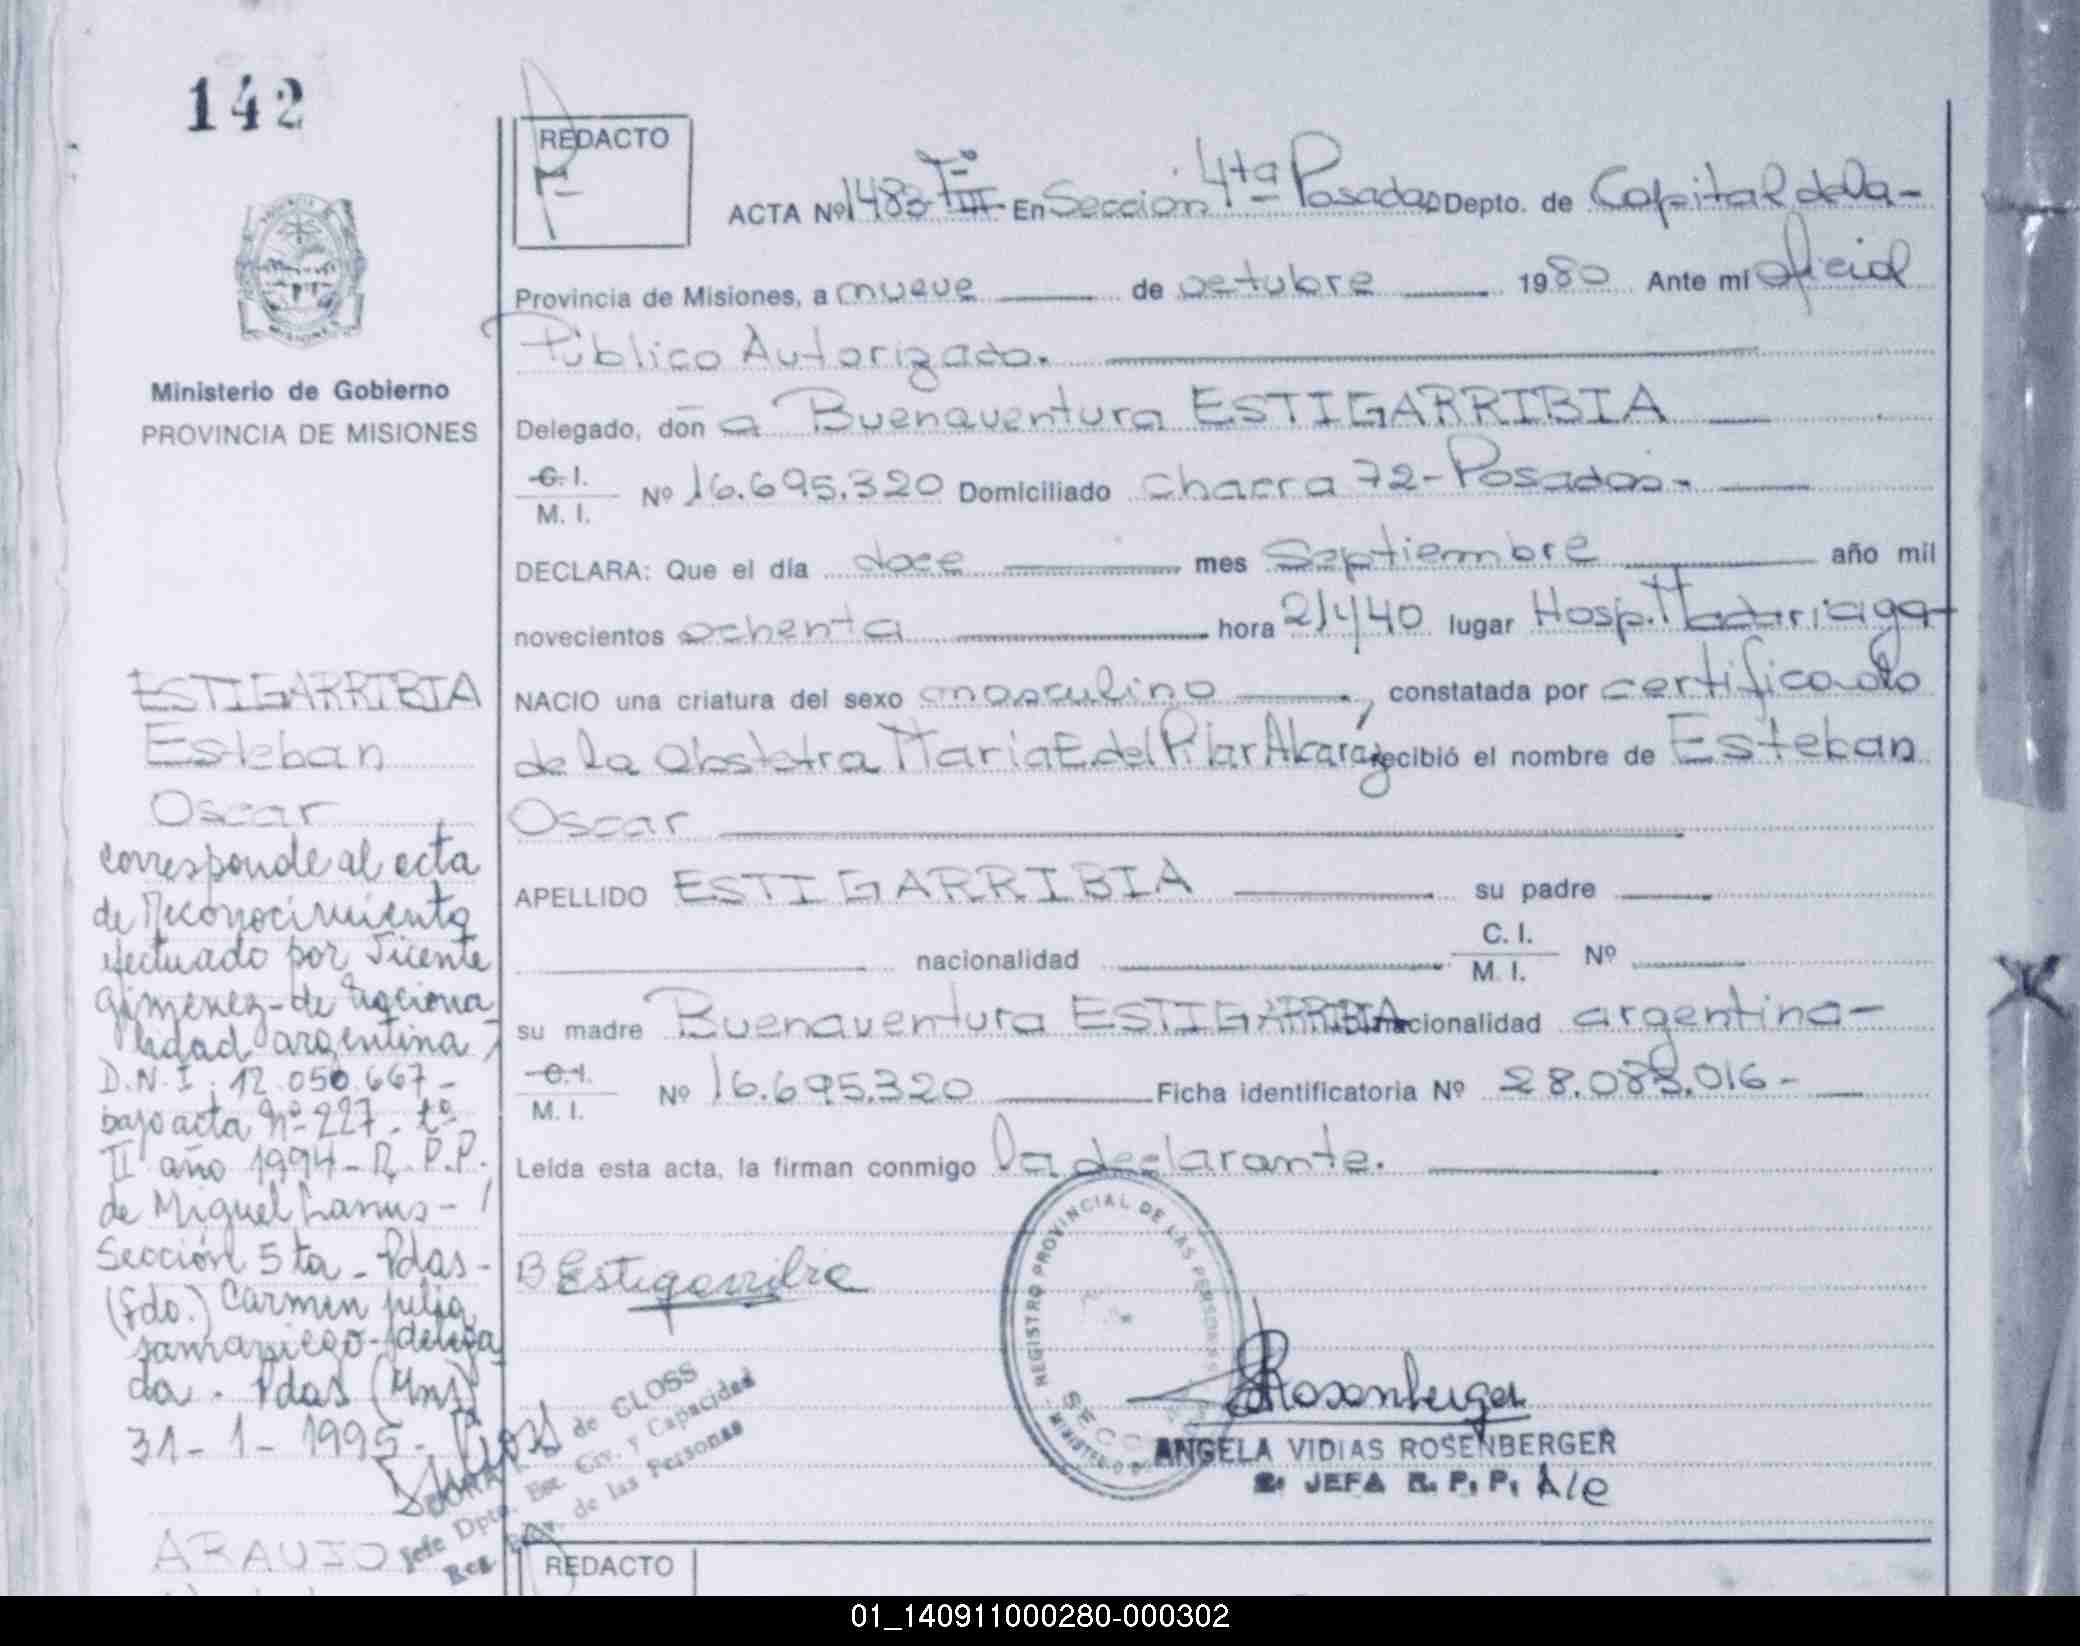 142
Ministerio de Gobierno
PROVINCIA DE MISIONES
ESTIGARRIBIA
Esteban
Oscar
corresponde al acta
de reconocimiento
efectuado por Vicente
Gimenez - de naciona
lidad argentina /
D.N.I. 12.050.667 -
bajo acta nº 227 - tº
II año 1994 - R.P.P.
de Miguel Lanus - /
Sección 5ta - Pdas -
(fdo.) Carmen Julia
Samaniego - Delega
da. Pdas (Mns)
31 - 1 - 1995 -
de GLOSS
Jefe Dpto. Est. Civ. y Capacidad
de las Personas
REDACTO
ACTA Nº 1483 Tº III En Sección 4ta Posadas Depto. de Capital de la -
Provincia de Misiones, a nueve de octubre 1980 Ante mí oficial
Público Autorizado.
Delegado, doña Buenaventura ESTIGARRIBIA
C. I.
M. I. Nº 16.695.320 Domiciliado chacra 72 - Posadas -
DECLARA: Que el día doce mes Septiembre año mil
novecientos ochenta hora 21/40 lugar Hosp. Madariaga
NACIO una criatura del sexo masculino, constatada por certificado
de la Obstetra Maria E. del Pilar Alcaraz recibió el nombre de Esteban
Oscar
APELLIDO ESTIGARRIBIA su padre
nacionalidad C. I. M. I. Nº
su madre Buenaventura ESTIGARRIBIA nacionalidad argentina -
C. I.
M. I. Nº 16.695.320 Ficha identificatoria Nº 28.083.016 -
Leída esta acta, la firman conmigo la declarante.
B Estigarribia
REGISTRO PROVINCIAL DE LAS PERSONAS
Rosenberger
ANGELA VIDIAS ROSENBERGER
2. JEFA R. P. P. A/e
ARAUJO
REDACTO
01_140911000280-000302